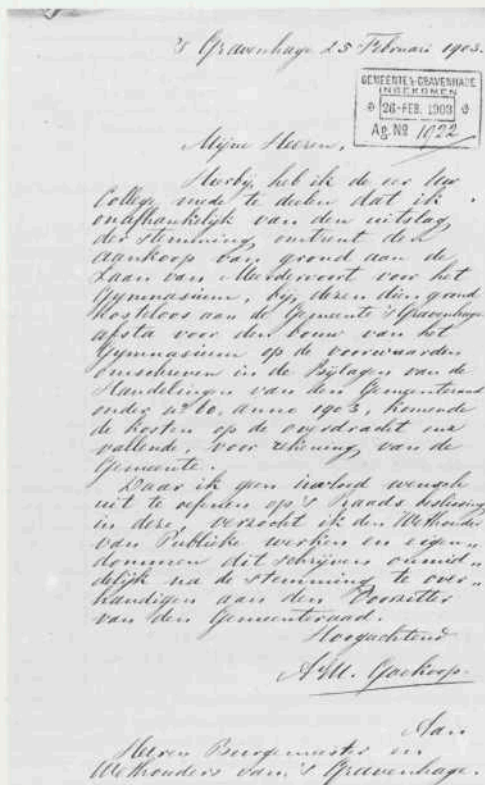 's Gravenhage 25 Februari 1903.
GEMEENTE 's-GRAVENHAGE
INGEKOMEN
26-FEB. 1903
Ag. No 1022
Mijne Heeren,
Hierbij heb ik de eer Uw
College mede te deelen dat ik
onafhankelijk van den uitslag
der stemming, omtrent den
aankoop van grond aan de
Laan van Meerdervoort voor het
Gymnasium, bij dezen dien grond
kosteloos aan de Gemeente 's Gravenhage
afsta voor den bouw van het
Gymnasium op de voorwaarden
omschreven in de Bijlagen van de
Handelingen van den Gemeenteraad
onder no 60, anno 1903, komende
de kosten op de overdracht enz
vallende, voor rekening van de
Gemeente.
Daar ik geen invloed wensch
uit te oefenen op 's Raads beslissing
in deze, verzocht ik den Wethouder
van Publieke werken en eigen„
dommen dit schrijven onmid„
delijk na de stemming te over„
handigen aan den Voorzitter
van den Gemeenteraad.
Hoogachtend
A.E.H. Goekoop.
Aan
Heeren Burgemeester en
Wethouders van 's Gravenhage.